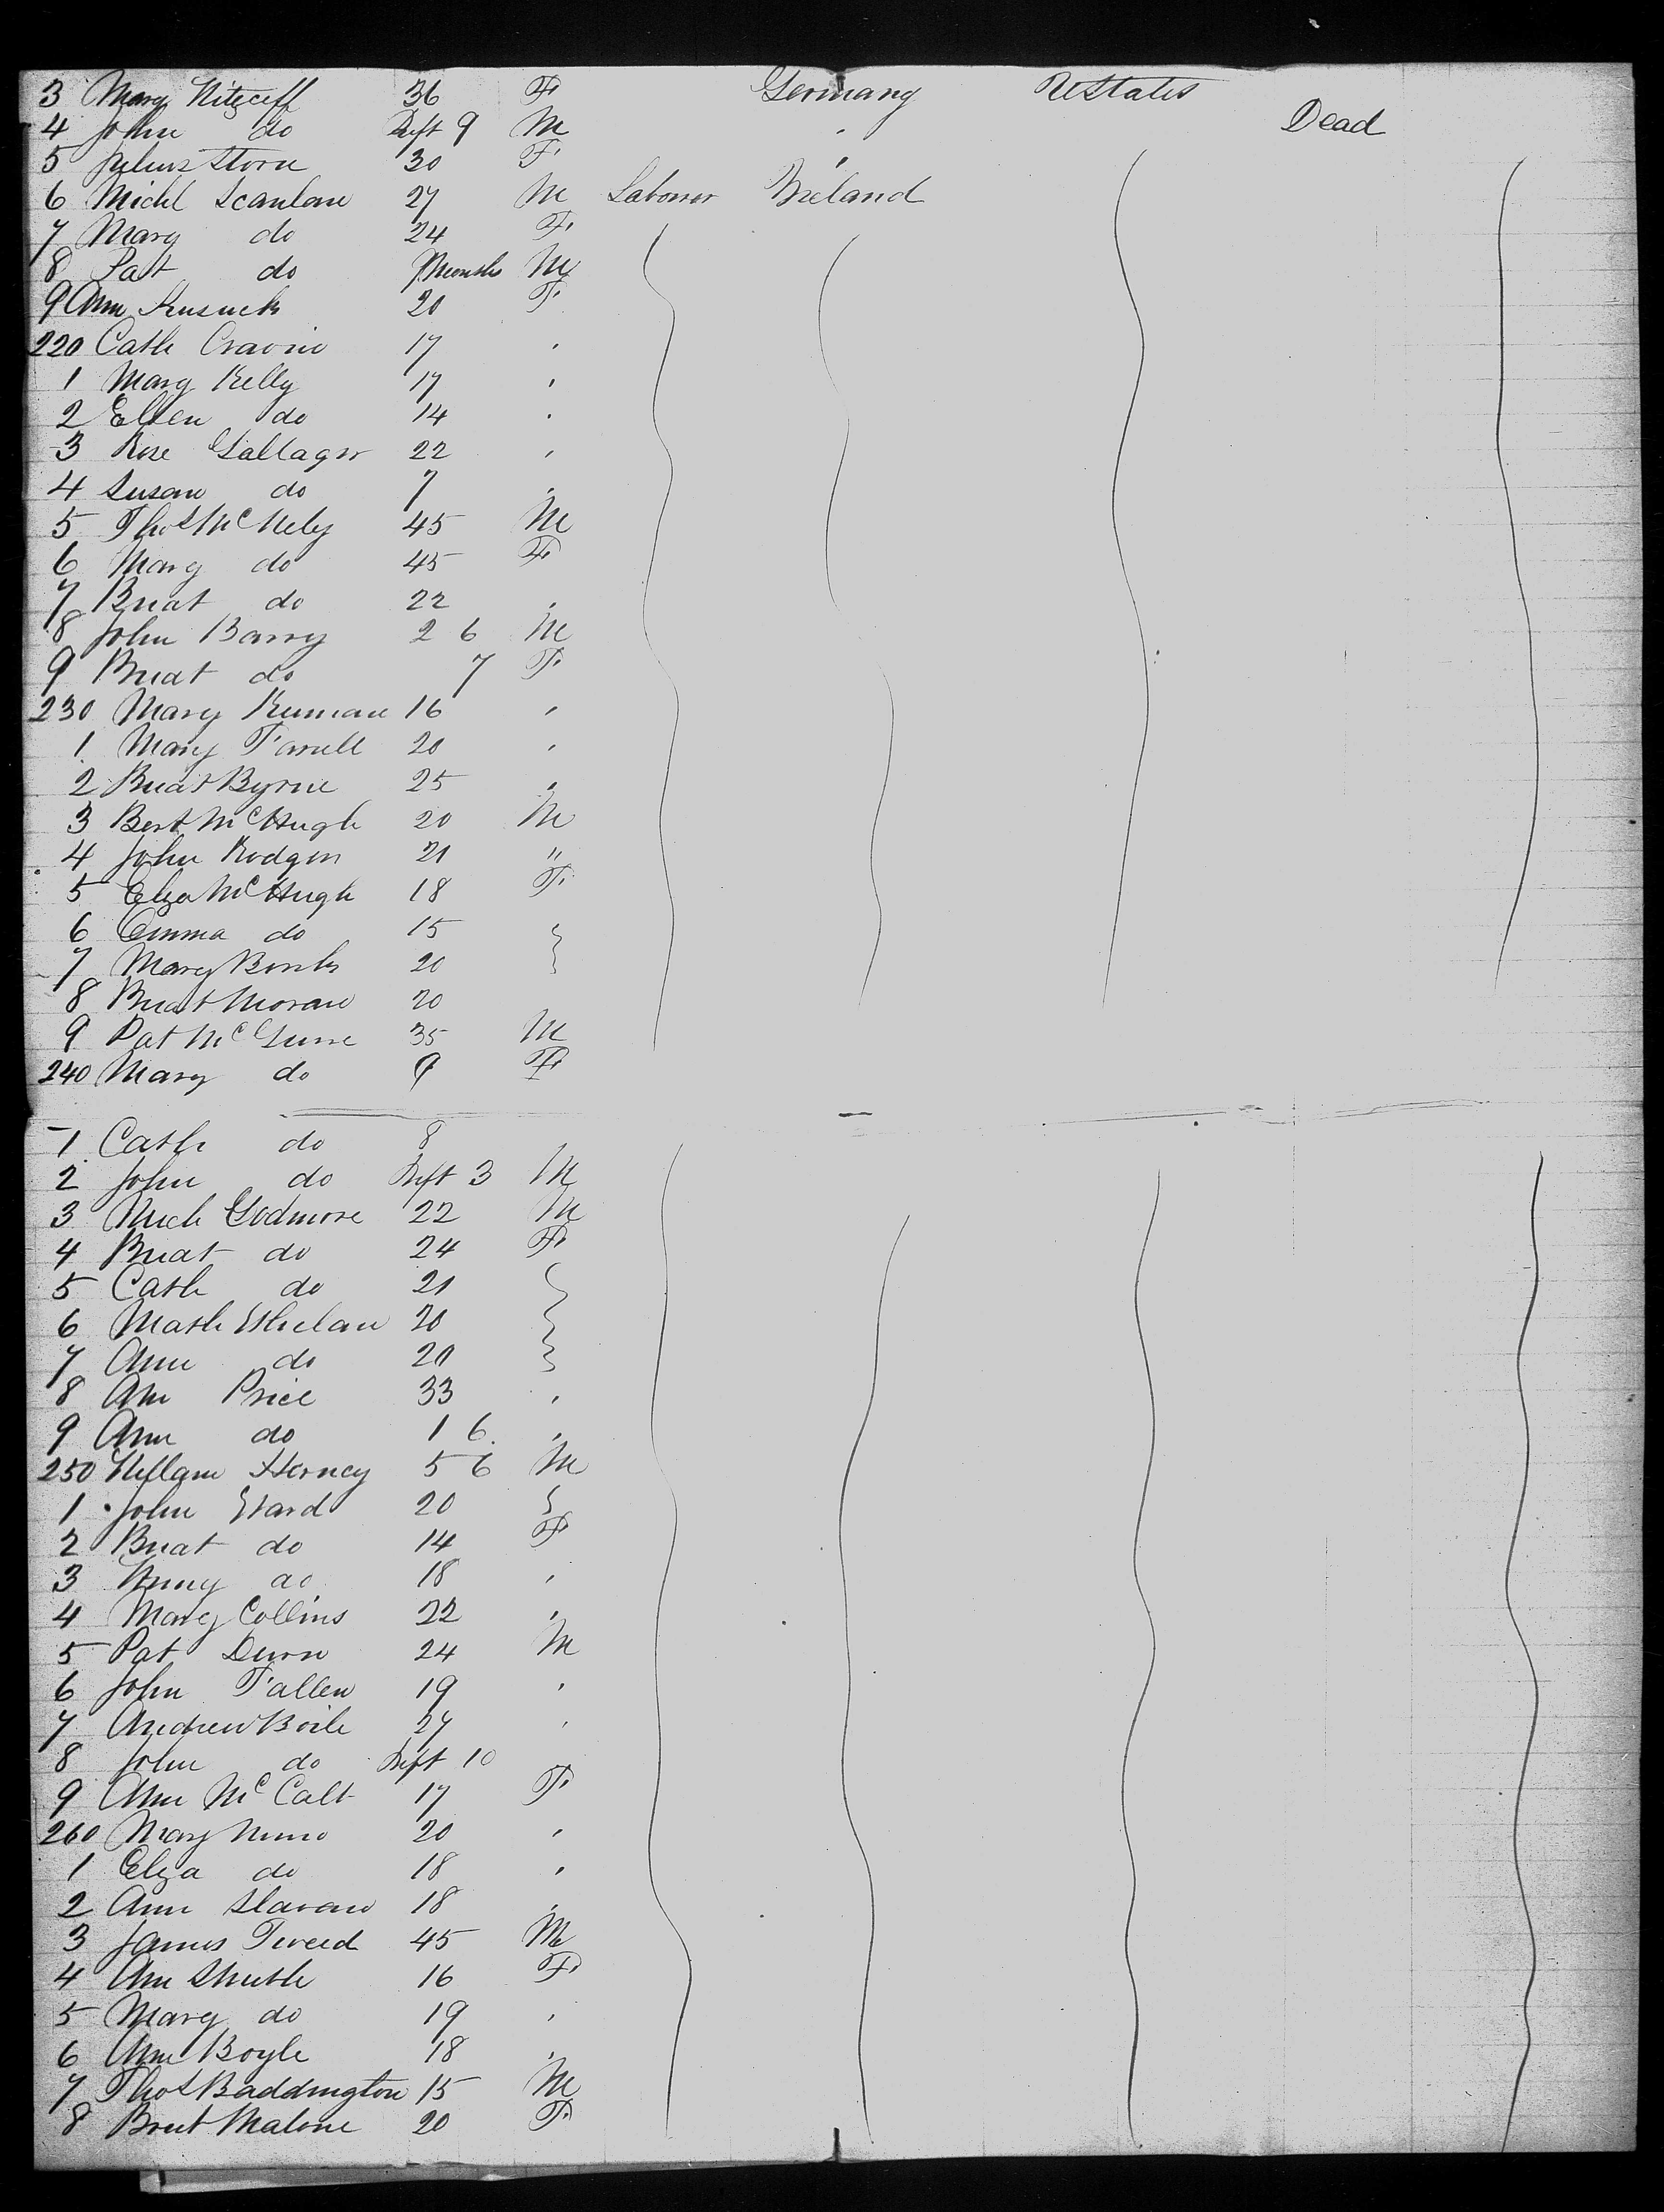 3 Mary Nitzceff 36 F Germany UStates
4 John do Inft 9 M " Dead
5 Julius Storn 30 F "
6 Michl Scanlon 27 M Laborer Ireland
7 Mary do 24 F
8 Pat do 7 Months M
9 Ann Kusick 20 F
220 Cath Cravin 17 "
1 Mary Kelly 17 "
2 Ellen do 14 "
3 Rose Gallager 22 "
4 Susan do 7 "
5 Thos McNely 45 M
6 Mary do 45 F
7 Bridt do 22 "
8 John Barry 2 6 M
9 Bridt do 7 F
230 Mary Kernan 16 "
1 Mary Farrell 20 "
2 Bridt Byrne 25 "
3 Bert McHugh 20 M
4 John Rodgers 21 "
5 Eliza McHugh 18 F
6 Emma do 15
7 Mary Banks 20
8 Bridt Moran 20
9 Pat McGurre 35 M
240 Mary do 9 F
1 Cath do 8
2 John do Inft 3 M
3 Mich Godmore 22 M
4 Bridt do 24 F
5 Cath do 21
6 Math Whelan 20
7 Ann do 20
8 Ann Price 33 "
9 Ann do 1 6 "
250 William Horney 5 6 M
1 John Ward 20
2 Bridt do 14 F
3 Honny do 18 "
4 Mary Collins 22 "
5 Pat Durn 24 M
6 John Fallen 19 "
7 Andrew Boile 27 "
8 John do Inft 10
9 Ann McCalt 17 F
260 Mary Nunn 20 "
1 Eliza do 18 "
2 Ann Slavan 18 "
3 James Tweed 45 M
4 Ann Shuttle 16 F
5 Mary do 19 "
6 Ann Boyle 18 "
7 Thos Baddington 15 M
8 Bridt Malone 20 F